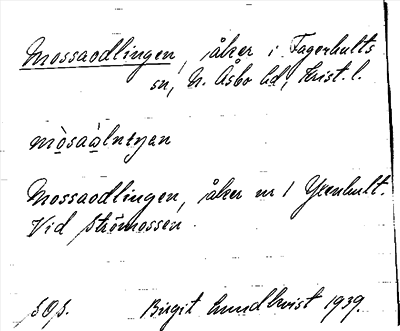 Mossaodlingen, åker i Fagerhults
sn, N. Åsbo hd, Krist. l.
mòsaàlnıŋan
Mossaodlingen, åker nr 1 Yxenhult.
Vid Strömossen.
S.O.S. Birgit Lundkvist 1939.